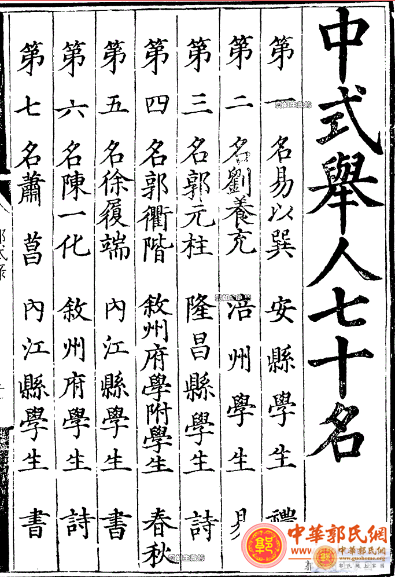 中式舉人七十名
第一名易以巽 安縣學生 禮
第二名劉養充 涪州學生 易
第三名郭元柱 隆昌縣學生 詩
第四名郭衢階 敘州府學附學生 春秋
第五名徐履端 內江縣學生 書
第六名陳一化 敘州府學生 詩
第七名蕭菖 內江縣學生 書
中華郭氏網